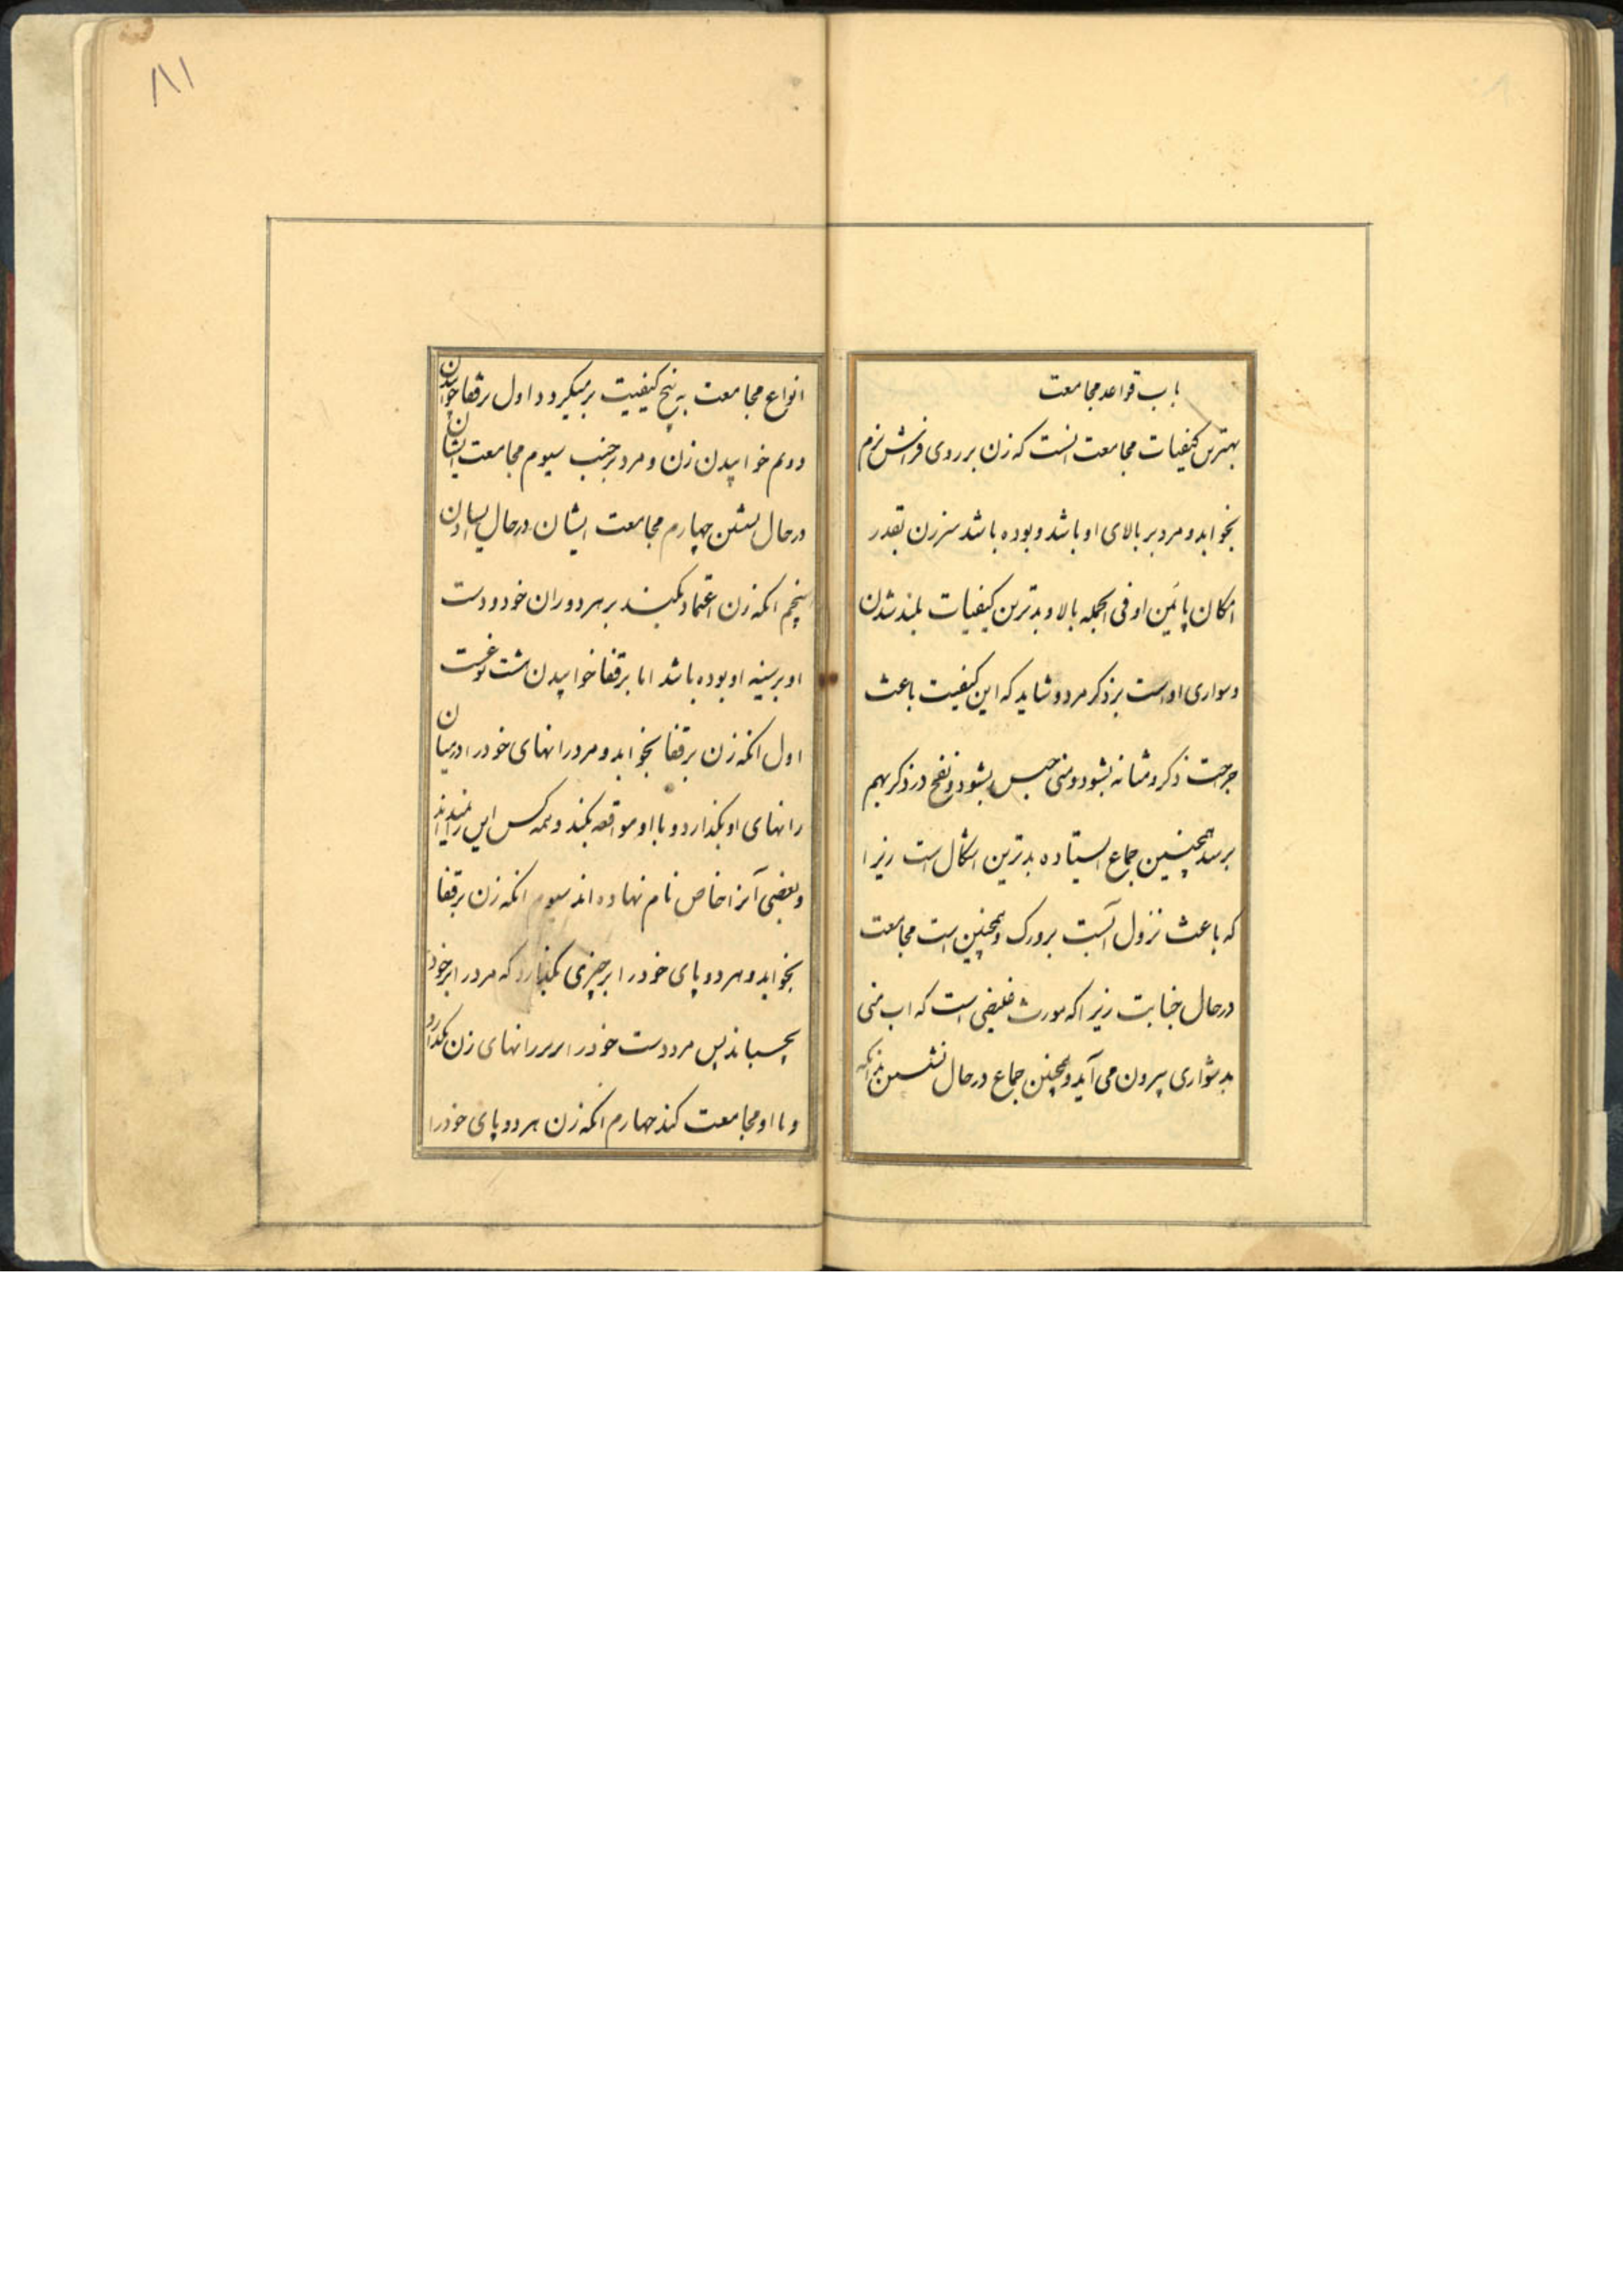 باب قواعد مجامعت
بهترین کیفیات مجامعت انست که زن بر روی فراش نرم
بخوابد و مرد بر بالای او باشد و بوده باشد سرزن بقدر
امکان پائین او فی الجمله بالا و بدترین کیفیات بلند شدن
و سواری او است بر ذکر مرد و شاید که این کیفیت باعث
جرحت ذکر و مثانه بشود و منی حبس بشود و نفخ در ذکر بهم
برسد همچنین جماع ایستاده بدترین اشکال است زیرا
که باعث نزول آبست بر ورک و همچنین است مجامعت
در حال جنابت زیرا که مورث است که اب منی
بدشواری بیرون می آید و همچنین جماع در حال نشستن بدانکه
۸۱
انواع مجامعت به پنج کیفیت بر میگیرود اول برقفا خوابیدن
دویم خوابیدن زن و مرد بر جنب سیوم مجامعت ایشان
در حال نشستن چهارم مجامعت ایشان در حال ایستادن
پنجم انکه زن اعتماد بکند بر هر دو ران خود و دست
او بر سینه او بوده باشد اما برقفا خوابیدن هشت نوعست
اول انکه زن برقفا بخوابد و مرد رانهای خود را در میان
رانهای او بکذارد و با او مواقعه بکند و همه کس این را میدانند
و بعضی آنرا خاص نام نهاده اند سیوم انکه زن برقفا
بخوابد و هر دو پای خود را بر چیزی بکذارد که مرد را بر خود
بچسباند پس مرد دست خود را بر رانهای زن بکذارد
و با او مجامعت کند چهارم انکه زن هر دو پای خود را